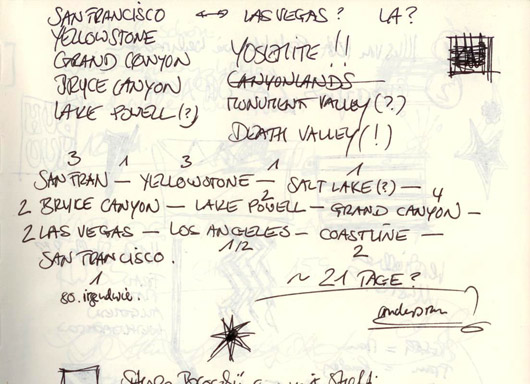 SAN FRANCISCO ↔ LAS VEGAS? LA?
YELLOWSTONE
GRAND CANYON
BRYCE CANYON
LAKE POWELL(?)
YOSEMITE !!
CANYONLANDS
MONUMENT VALLEY(?)
DEATH VALLEY(!)
3 1 3 1 1
SAN FRAN – YELLOWSTONE – SALT LAKE(?) –
2 4
2 BRYCE CANYON – LAKE POWELL – GRAND CANYON –
2 LAS VEGAS – LOS ANGELES – COASTLINE –
1/2 2
SAN FRANCISCO.
1
so. irgendwie.
~ 21 TAGE?
andersrum